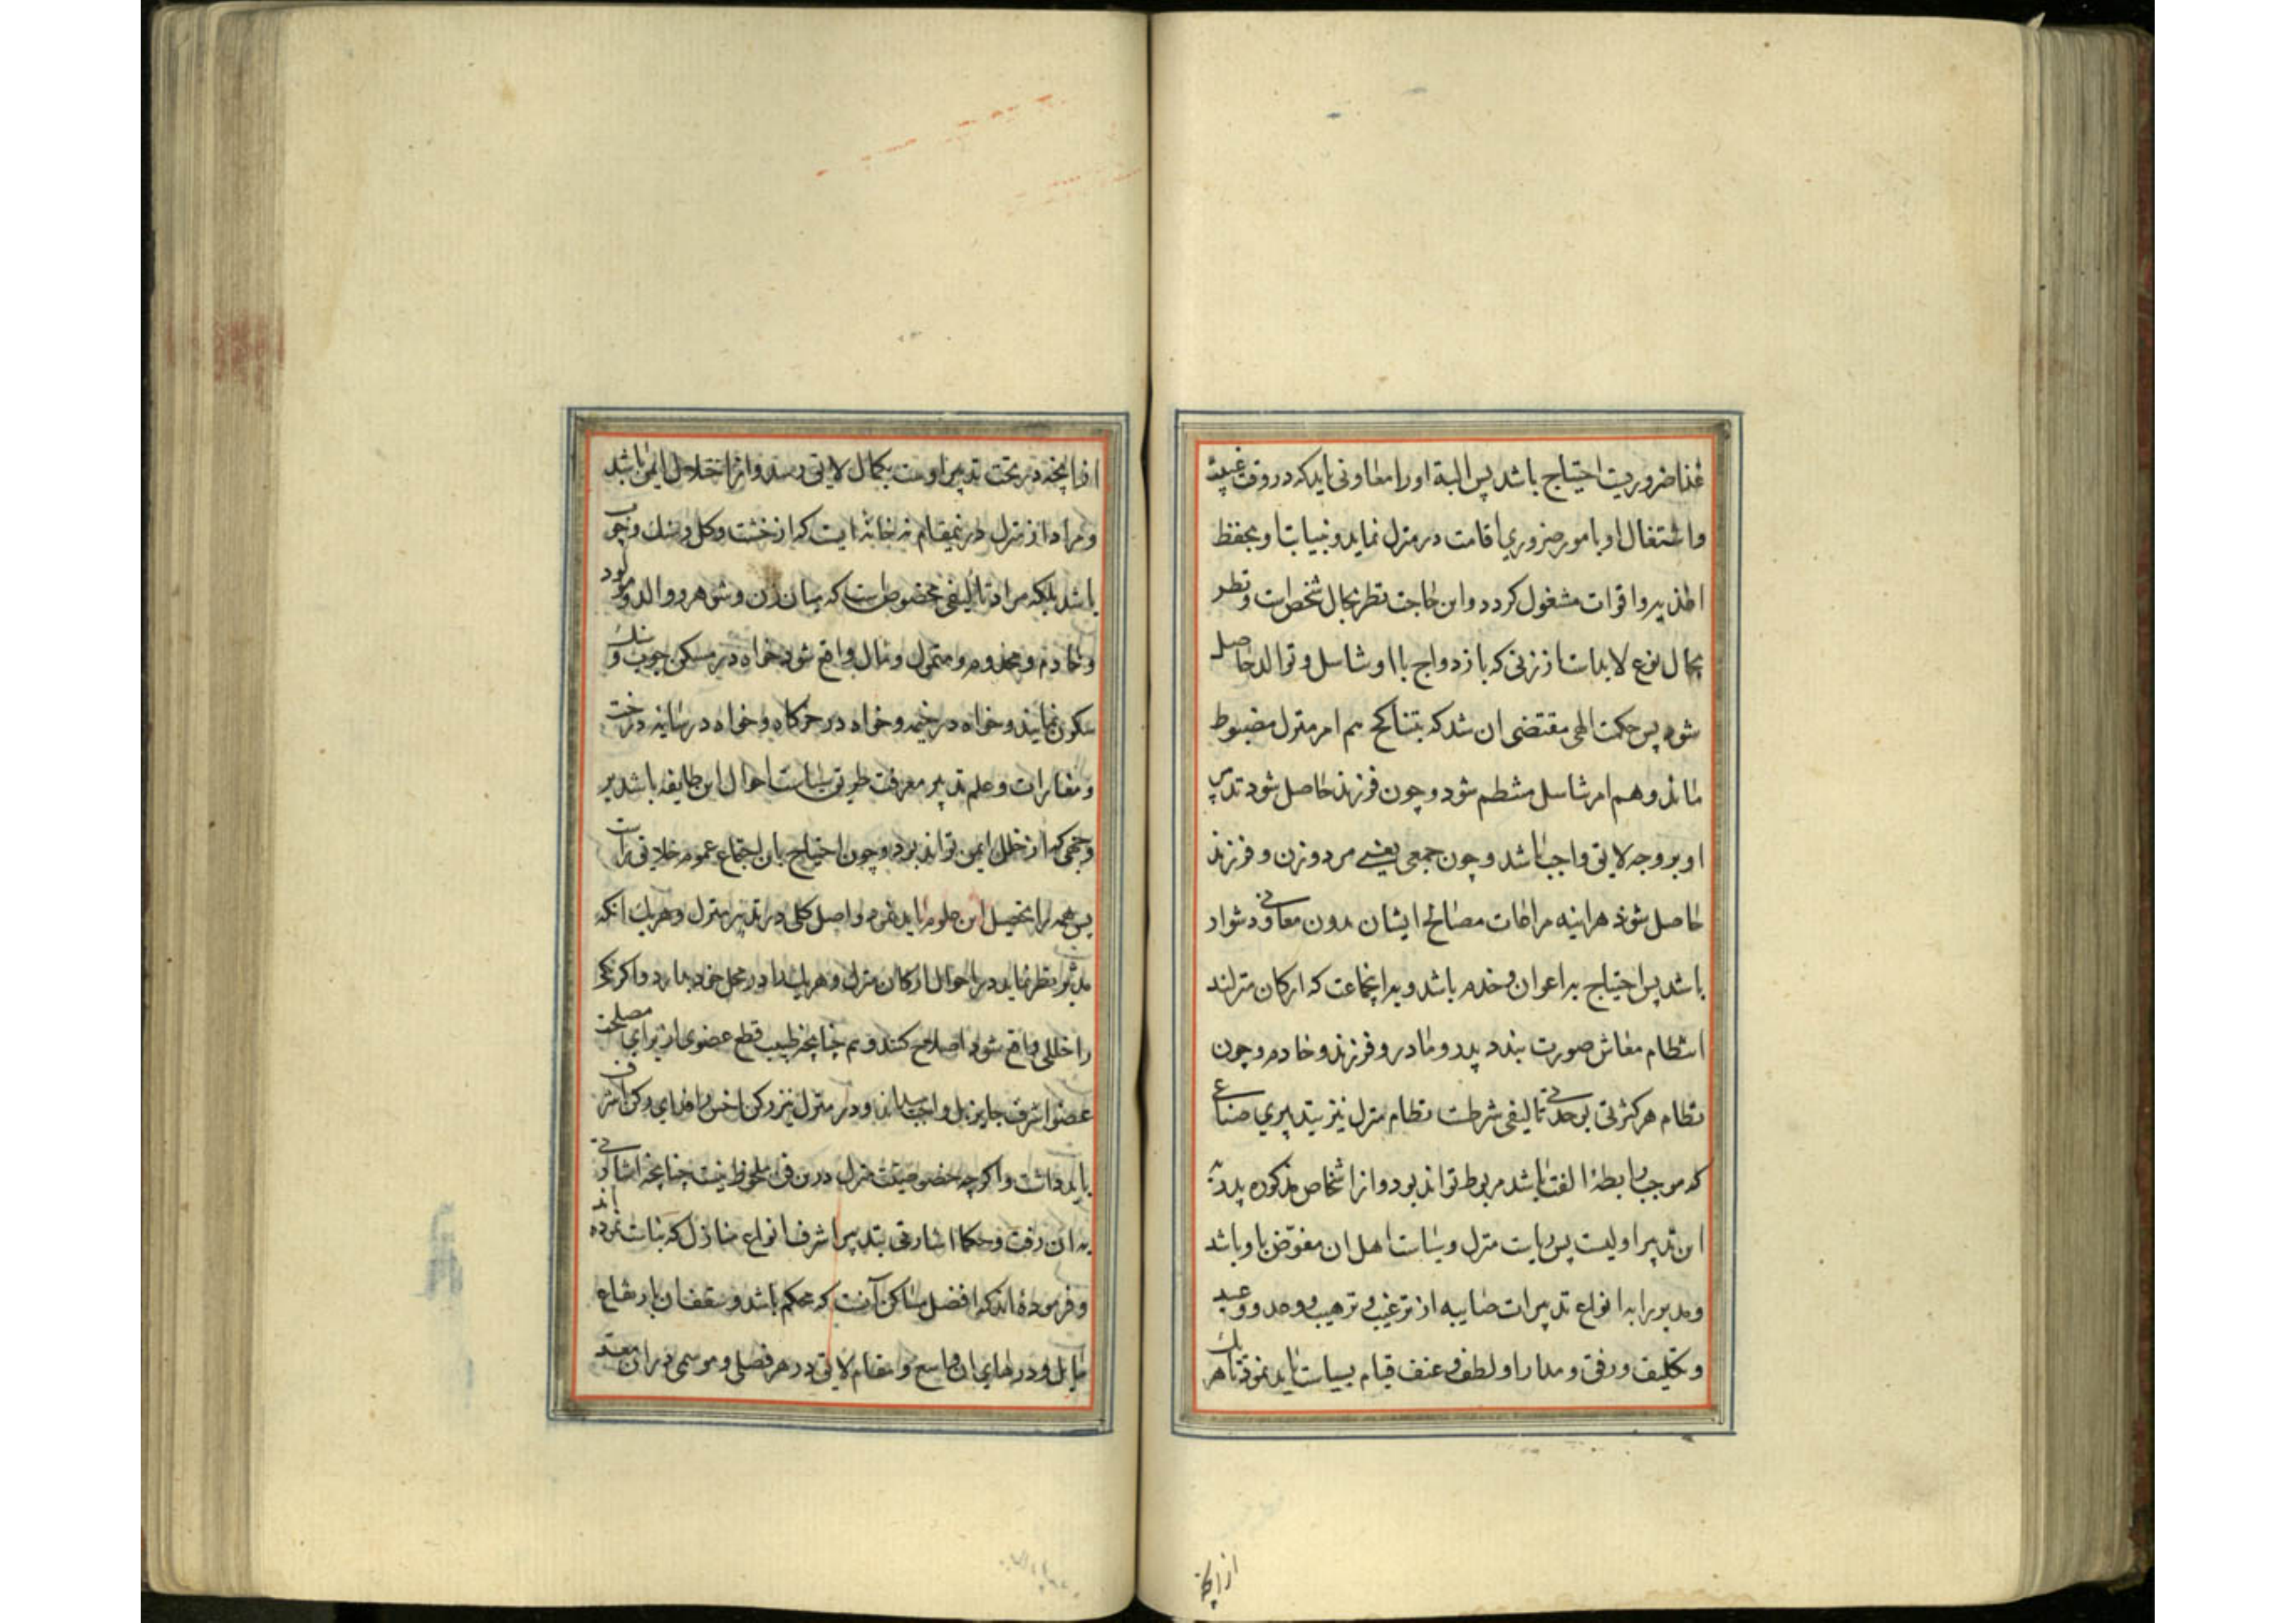 غذا ضروریست احتیاج باشد پس البته او را معاونی باید که در وقت غیبت
واشتغال او بامور ضروری اقامت در منزل نماید و بنیابت او بحفظ
اغذیه و اقوات مشغول کردد واین حاجت نظر بحال شخص است ونظر
بحال نوع لابد است از زنی که بازدواج با او تناسل و توالد حاصل
شود پس حکمت الهی مقتضی ان شد که بتناکح هم امر منزل مضبوط
ماند وهم امر تناسل منتظم شود و چون فرزند حاصل شود تدبیر
او بروجه لایق واجب باشد و چون جمعی یعنی مرد وزن و فرزند
حاصل شوند هراینه مراعات مصالح ایشان بدون معاونی دشوار
باشد پس احتیاج به اعوان وخدم باشد و به اینجماعت که ارکان منزلند
انتظام معاش صورت بندد پدر ومادر و فرزند و خادم وچون
نظام هر کثرتی بوحدتی تالیفی شرطست نظام منزل نیز بتدبیری صناعی
که موجب رابطهٔ الفت باشد مربوط تواند بود واز اشخاص مذکوره پدر به
این تدبیر اولیست پس ریاست منزل وسیاست اهل ان مفوّض باو باشد
ومدبر را به انواع تدبیرات صایبه از ترغیب و ترهیب و وعد و وعید
وتکلیف و رفق و مدارا و لطف و عنف قیام بسیاست باید نمود تا هر یک
از آنچه
از آنچه در تحت تدبیر اوست بکمال لایق رسد واز اختلال ایمن باشد
ومراد از منزل درینمقام نه خانهٔ ایست که از خشت وکل وسنک وچوب
باشد بلکه مراد تالیفی مخصوص است که میان زن وشوهر و والد ومولود
وخادم ومخدوم و متمول ومال واقع شود خواه در مسکن چوب وسنک
سکون نمایند وخواه در خیمه وخواه در خرکاه وخواه در سایه درخت
ومغارات وعلم تدبیر معرفت طریق سیاست احوال این طایفه باشد بر
وجهی که از خلل ایمن تواند بود وچون احتیاج باین اجتماع عموم خلایق راست
پس همه را تحصیل این علوم باید نمود واصل کلی در تدبیر منزل وهریک انکه
مدبر نظر نماید در احوال ارکان منزل وهریک را در محل خود بدارد واکر یکی
را خللی واقع شود اصلاح کند و هم چنانچه طبیب قطع عضوی از برای مصلحت
عضو اشرف جایز بل واجب داند ودر منزل نیز رکن اخس را فدای رکن اشرف
باید داشت واکرچه خصوصیت منزل درین فن ملحوظ نیست چنانچه اشارتی
به ان رفت وحکما اشارتی بتدبیر اشرف انواع منازل که بناست نموده اند
وفرموده اند که افضل مساکن آنست که محکم باشد وسقف ان بارتفاع
مایل ودرهای ان واسع ومقام لایق در هر فصلی وموسمی در ان معد